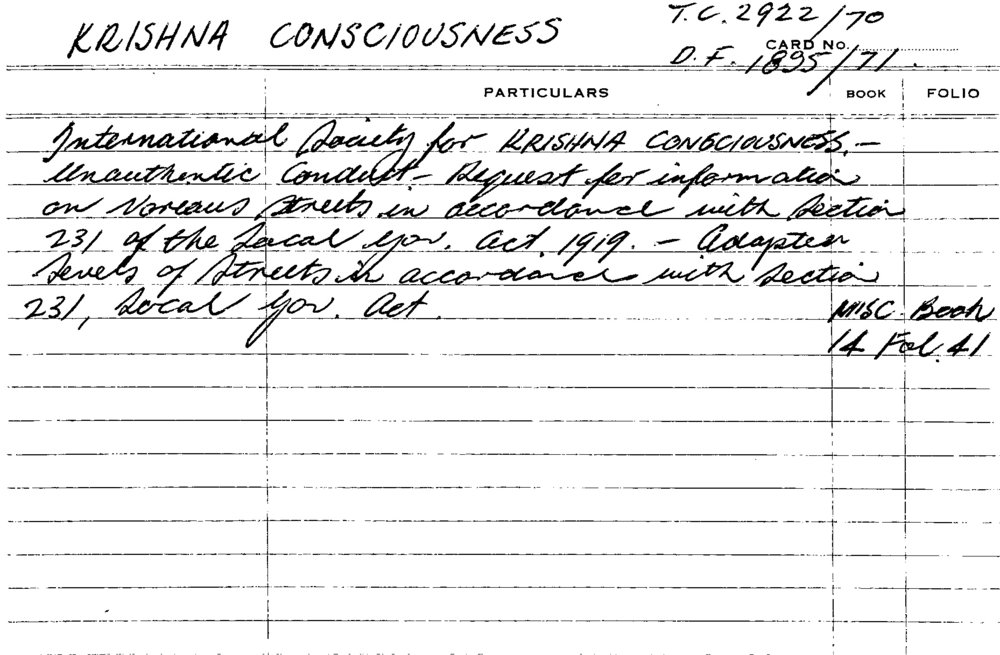 KRISHNA CONSCIOUSNESS
T.C. 2922/70
CARD No.
D.F. 1895/71.
PARTICULARS BOOK FOLIO
International Society for KRISHNA CONSCIOUSNESS. –
Unauthentic Conduct – Request for information
on Various Streets in accordance with Section
231 of the Local Gov. Act 1919. – Adopted
Levels of Streets in accordance with Section
231, Local Gov. Act.
MISC. Book
14 Fol. 41